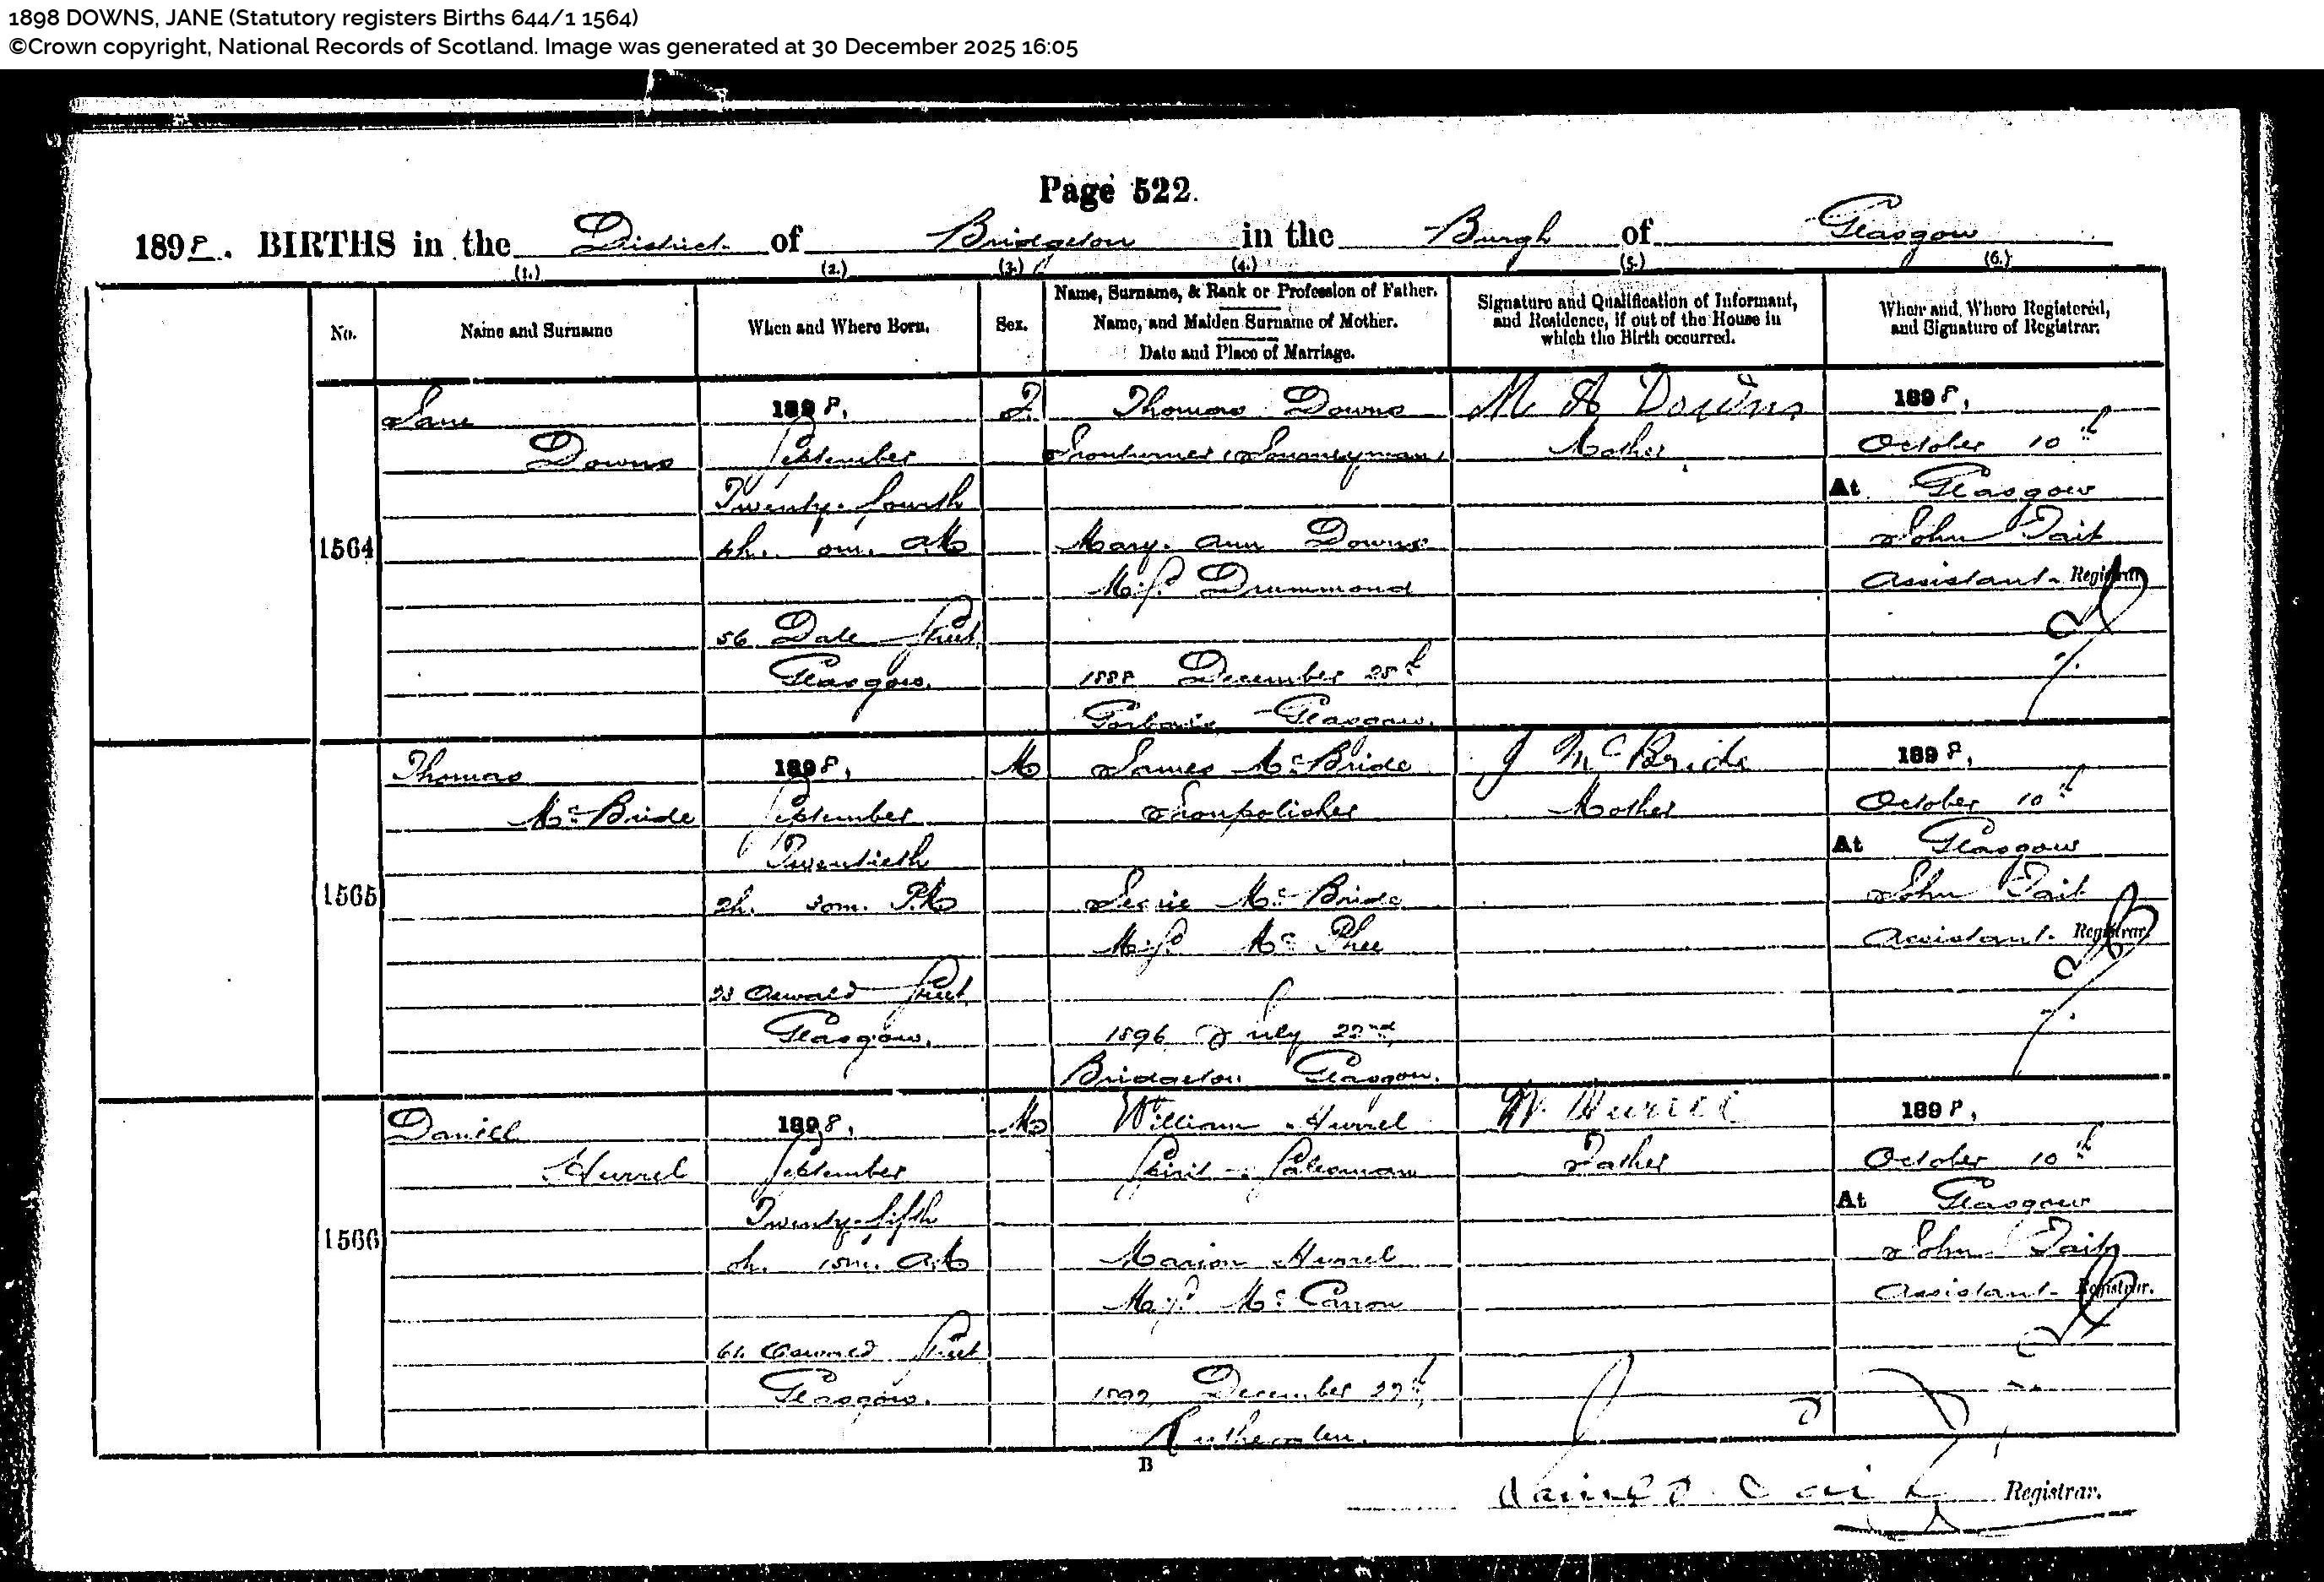 1898 DOWNS, JANE (Statutory registers Births 644/1 1564)
©Crown copyright, National Records of Scotland. Image was generated at 30 December 2025 16:05
Page 522.
1898. BIRTHS in the District of Bridgeton in the Burgh of Glasgow
(1.) (2.) (3.) (4.) (5.) (6.)
No.
Name and Surname
When and Where Born.
Sex.
Name, Surname, & Rank or Profession of Father.
Name, and Maiden Surname of Mother.
Date and Place of Marriage.
Signature and Qualification of Informant,
and Residence, if out of the House in
which the Birth occurred.
When and Where Registered,
and Signature of Registrar.
1564
Jane
Downs
1898,
September
Twenty-fourth
4h. 0m. AM
56 Dale Street
Glasgow.
F.
Thomas Downs
Ironturner (Journeyman)
Mary Ann Downs
M.S. Drummond
1888 December 28th
Gorbals Glasgow.
M A Downs
Mother
1898,
October 10th
At Glasgow
John Tait
Assistant Registrar
1565
Thomas
McBride
1898,
September
Twentieth
2h. 30m. PM
23 Oswald Street
Glasgow.
M
James McBride
Ironpolisher
McBride
M.S. McPhee
1896 July 22nd
Bridgeton Glasgow.
J McBride
Mother
1898,
October 10th
At Glasgow
John Tait
Assistant Registrar
1566
Daniel
Hurrel
1898,
September
Twenty-fifth
h. 15m. AM
Oswald Street
Glasgow.
M
William Hurrel
Spirit Salesman
Marion Hurrel
M.S. McCarron
December 27th
Rutherglen.
W. Hurrel
Father
1898,
October 10th
At Glasgow
John Tait
Assistant Registrar.
B
Registrar.